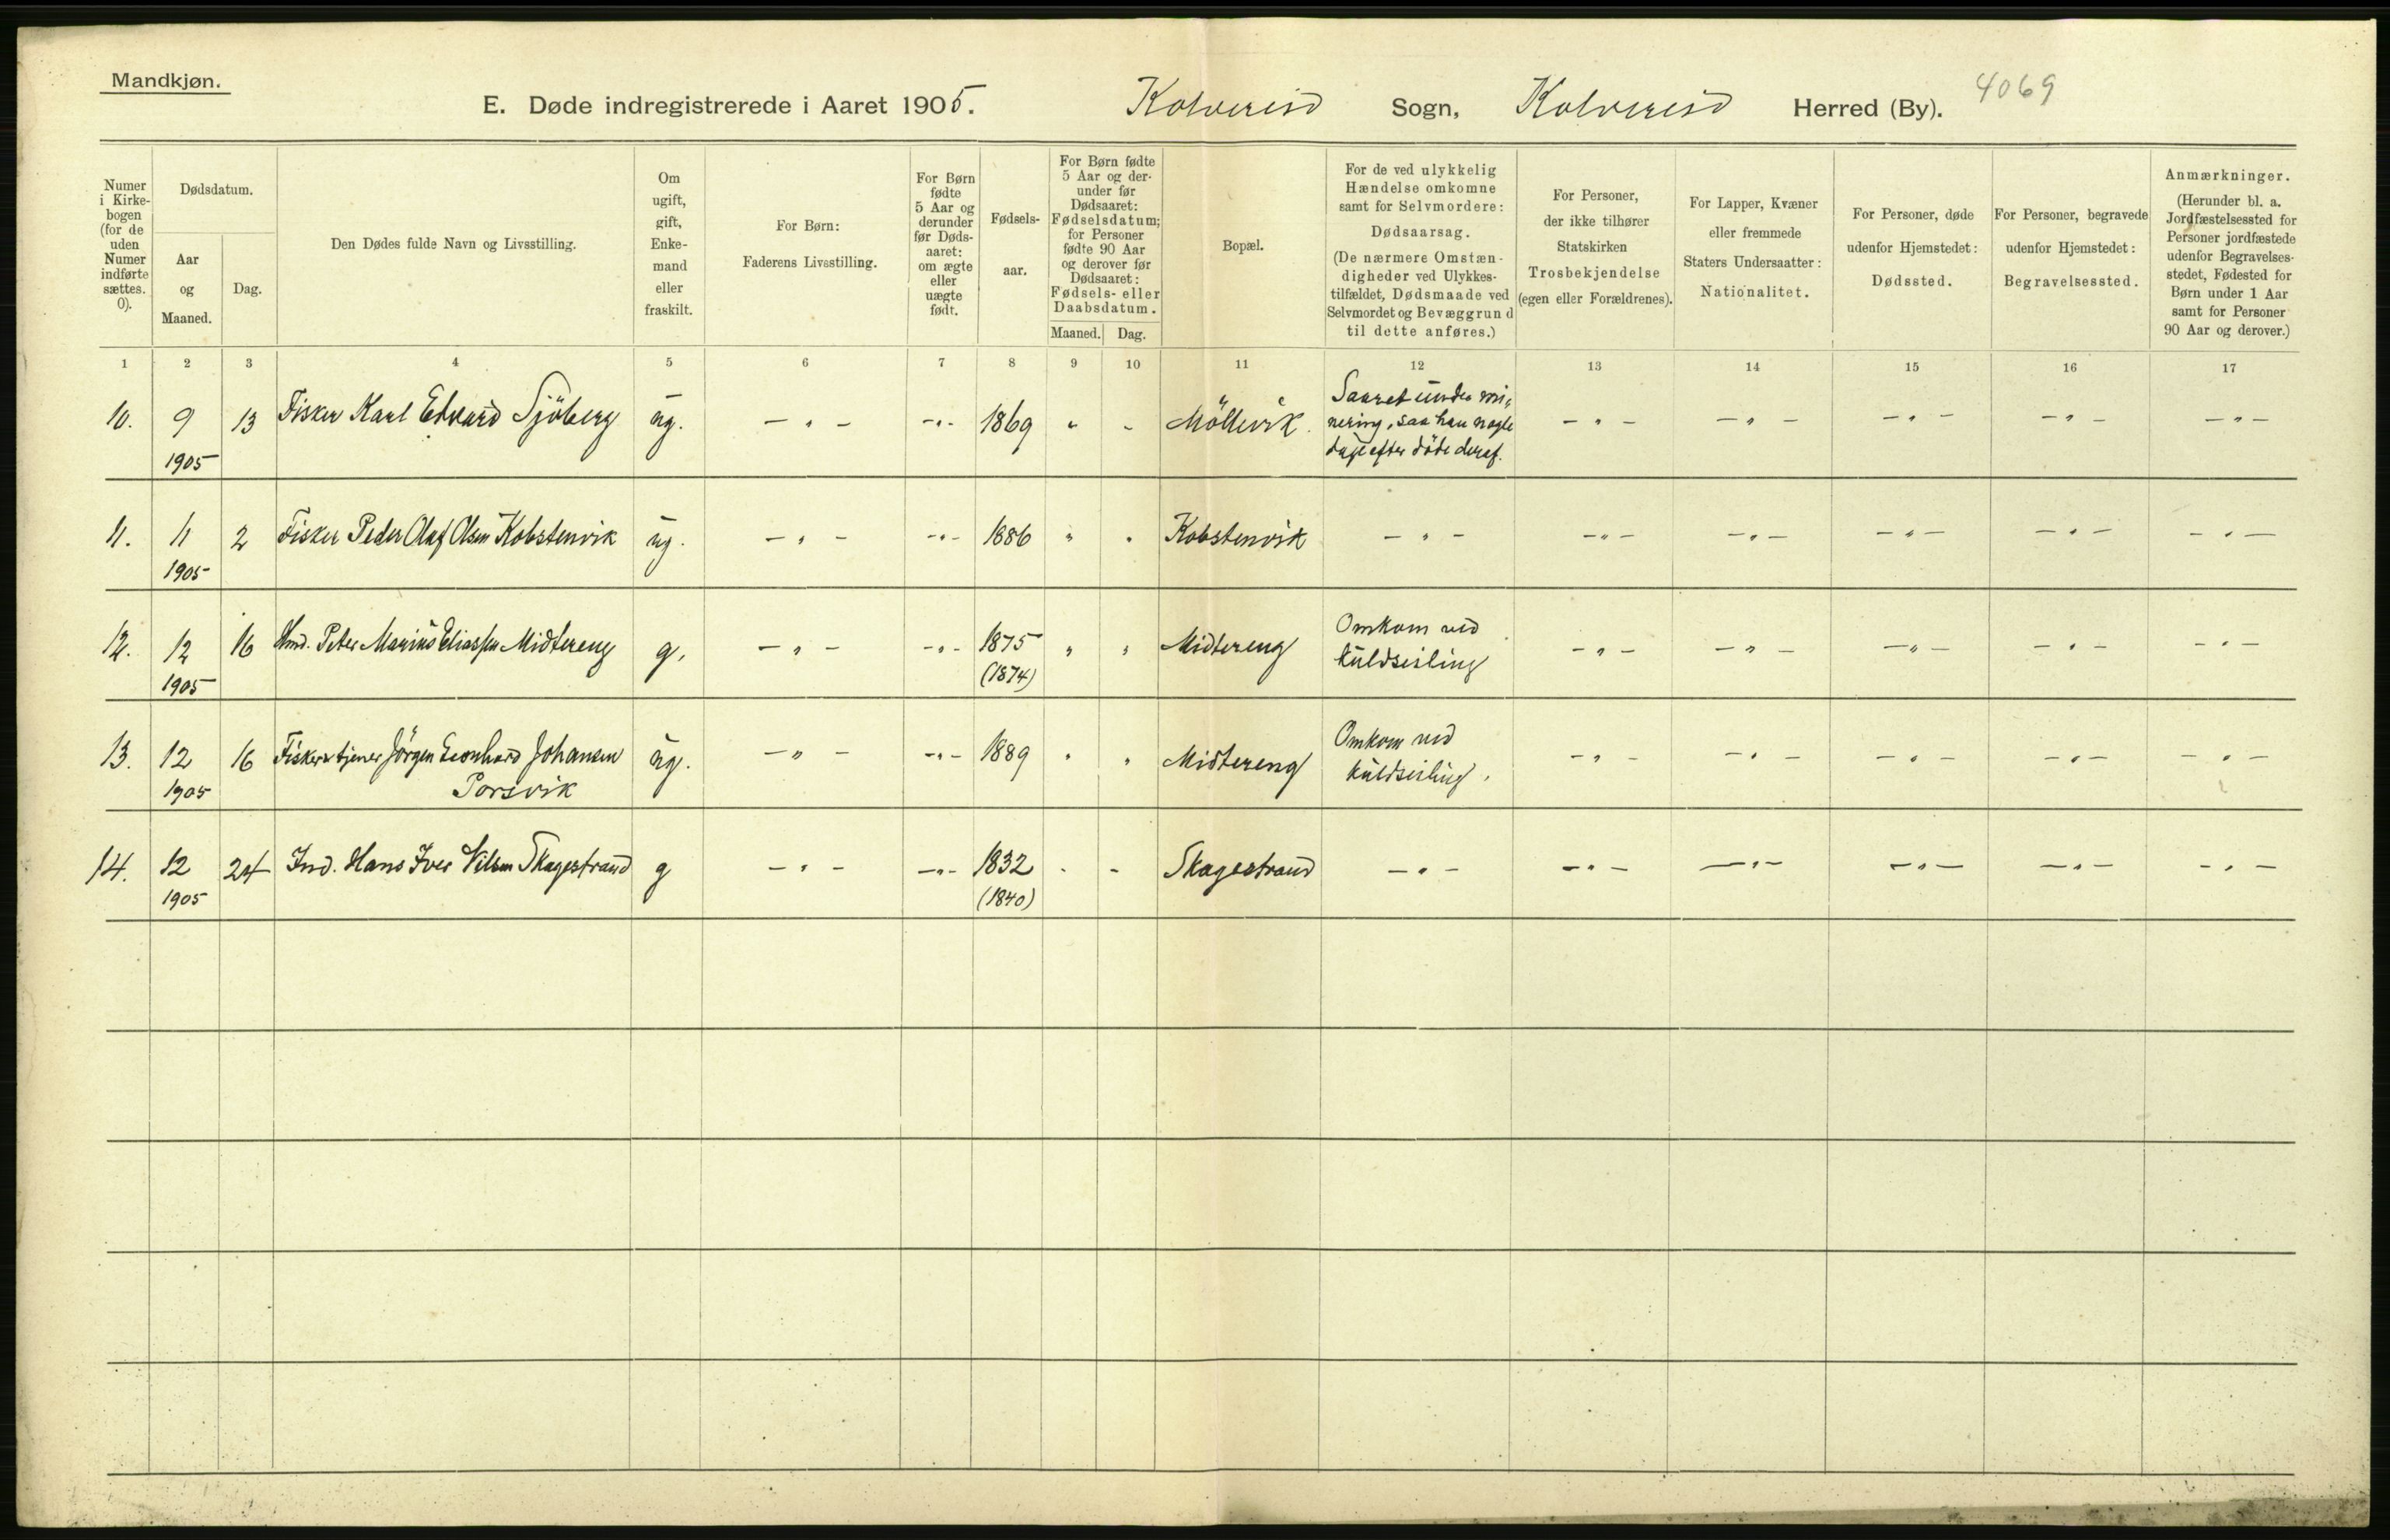 Mandkjøn.
E. Døde indregistrerede i Aaret 1905. Kolvereid Sogn, Kolvereid Herred (By). 4069
Numer i Kirkebogen (for de uden Numer indførte sættes. 0).
Dødsdatum.
Aar og Maaned.
Dag.
Den Dødes fulde Navn og Livsstilling.
Om ugift, gift, Enkemand eller fraskilt.
For Børn:
Faderens Livsstilling.
For Børn fødte 5 Aar og derunder før Dødsaaret: om ægte eller uægte født.
Fødselsaar.
For Børn fødte 5 Aar og derunder før Dødsaaret: Fødselsdatum; for Personer fødte 90 Aar og derover før Dødsaaret: Fødsels- eller Daabsdatum.
Maaned. Dag.
Bopæl.
For de ved ulykkelig Hændelse omkomne samt for Selvmordere: Dødsaarsag.
(De nærmere Omstændigheder ved Ulykkestilfældet, Dødsmaade ved Selvmordet og Bevæggrund til dette anføres.)
For Personer, der ikke tilhører Statskirken
Trosbekjendelse (egen eller Forældrenes).
For Lapper, Kvæner eller fremmede Staters Undersaatter:
Nationalitet.
For Personer, døde udenfor Hjemstedet:
Dødssted.
For Personer, begravede udenfor Hjemstedet:
Begravelsessted.
Anmærkninger.
(Herunder bl. a. Jordfæstelsessted for Personer jordfæstede udenfor Begravelsesstedet, Fødested for Børn under 1 Aar samt for Personer 90 Aar og derover.)
1 2 3 4 5 6 7 8 9 10 11 12 13 14 15 16 17
10. 9 1905 13 Fisker Karl Edvard Sjöberg ug. - " - - " - 1869 " " Möllevik. Saaret under minering, saa han nogle dage efter döde deraf. - " - - " - - " - - " - - " -
11. 11 1905 2 Fisker Peder Olaf Olsen Kobstenvik ug. - " - - " - 1886 " " Kobstenvik - " - - " - - " - - " - - " - - " -
12. 12 1905 16 Hmd. Peter Marius Eliassen Midtereng g. - " - - " - 1875 (1874) " " Midtereng Omkom ved kuldseiling - " - - " - - " - - " - - " -
13. 12 1905 16 Fisker & tjener Jörgen Leonhard Johansen Porsvik ug. - " - - " - 1889 " " Midtereng Omkom ved kuldseiling. - " - - " - - " - - " - - " -
14. 12 1905 24 Ind. Hans Iver Nilsen Skagestrand g - " - - " - 1832 (1840) " " Skagestrand - " - - " - - " - - " - - " - - " -